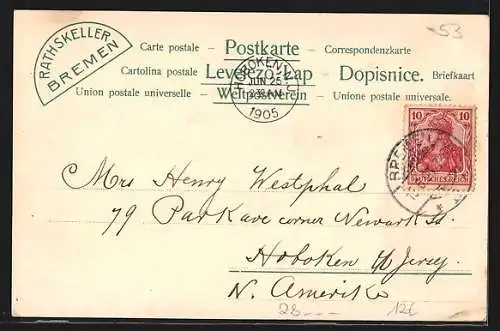 RATHSKELLER
BREMEN
Carte postale - Postkarte - Correspondenzkarte
Cartolina postale - Levelező-Lap - Dopisnice. Briefkaart
Union postale universelle - Weltpostverein - Unione postale universale.
HOBOKEN, N.J.
JUN 25
1905
10 10
DEUTSCHES REICH
BREMEN
53
Mrs Henry Westphal
79 Park ave corner Newark St
Hoboken N/Jersey
N. Amerika
28 - - - 12L